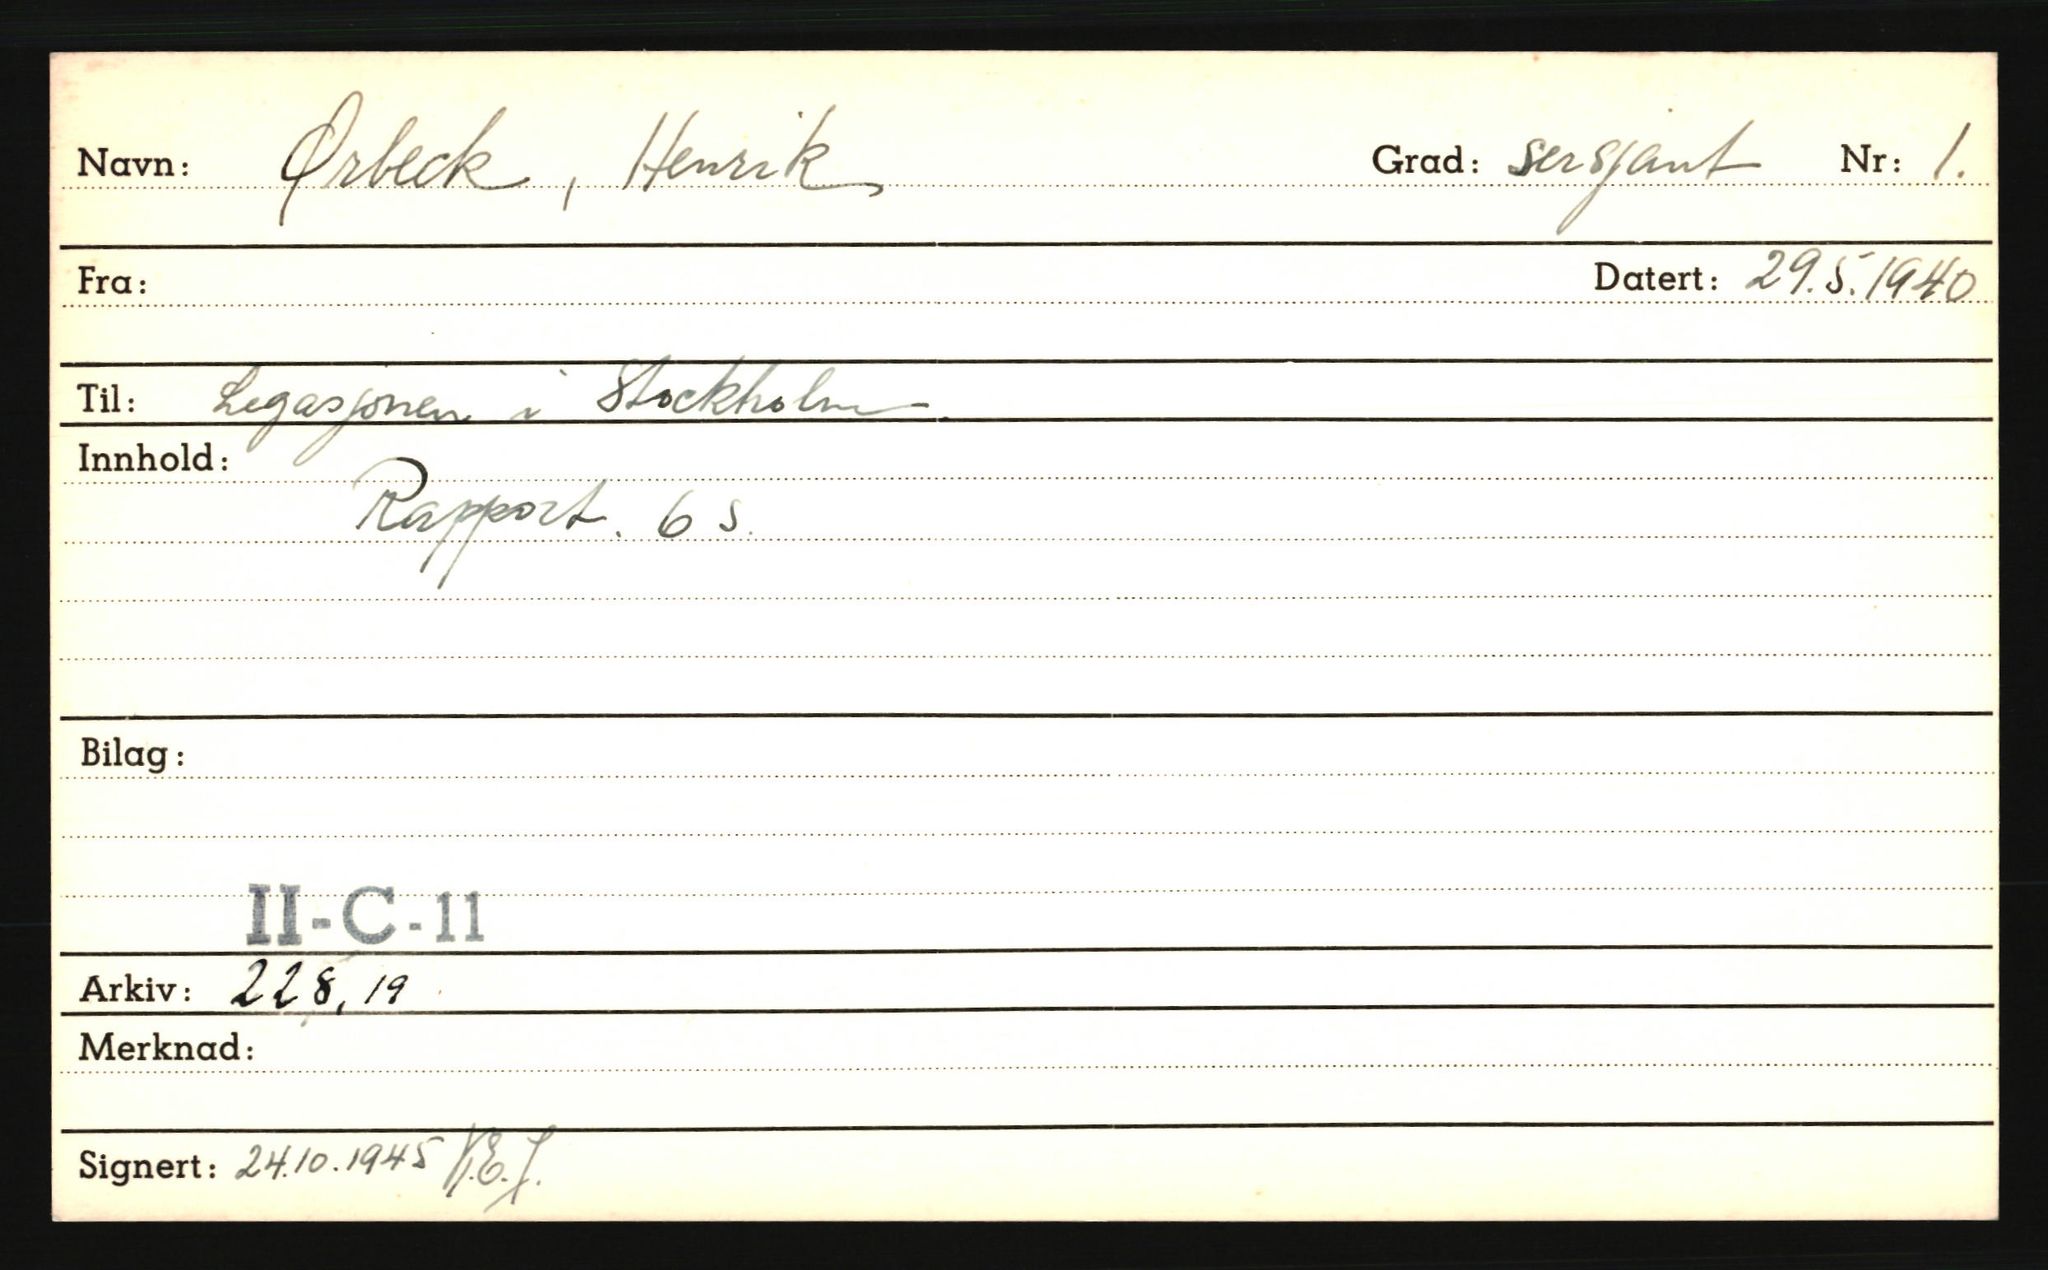 Navn: Ørbeck, Henrik Grad: sersjant Nr: 1.
Fra: Datert: 29.5.1940
Til: Legasjonen i Stockholm.
Innhold:
Rapport. 6 s.
Bilag:
II-C-11
Arkiv: 228, 19
Merknad:
Signert: 24.10.1945